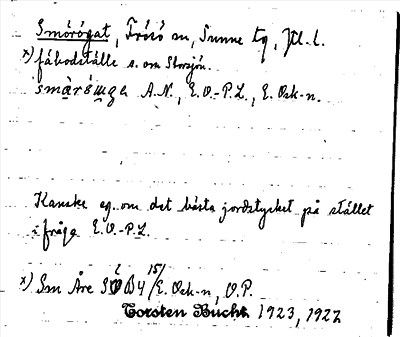 Smörögat, Frösö sn, Sunne tg, Jtl. l.
x) fäbodställe s. om Storsjön.
A.N., E.O.-P.L., E. Osk-n.
Kanske eg. om det bästa jordstycket på stället
i fråga E.O.-P.L.
x) Sm Åre SO B4 15/ E. Osk-n, O.P.
Torsten Bucht 1923, 1922